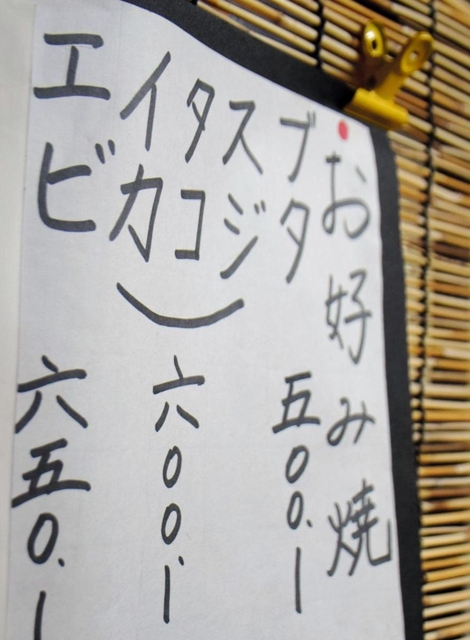 お好み焼
ブタ 五〇〇.ー
スジ
タコ
イカ
六〇〇.ー
エビ 六五〇.ー